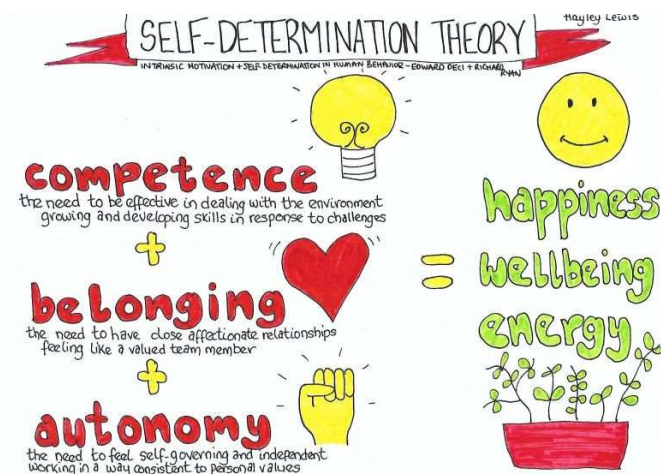 SELF-DETERMINATION THEORY
Hayley Lewis
INTRINSIC MOTIVATION + SELF-DETERMINATION IN HUMAN BEHAVIOR - EDWARD DECI + RICHARD
RYAN
competence
the need to be effective in dealing with the environment
growing and developing skills in response to challenges
+
belonging
the need to have close affectionate relationships
feeling like a valued team member
+
autonomy
the need to feel self-governing and independent
working in a way consistent to personal values
=
happiness
wellbeing
energy